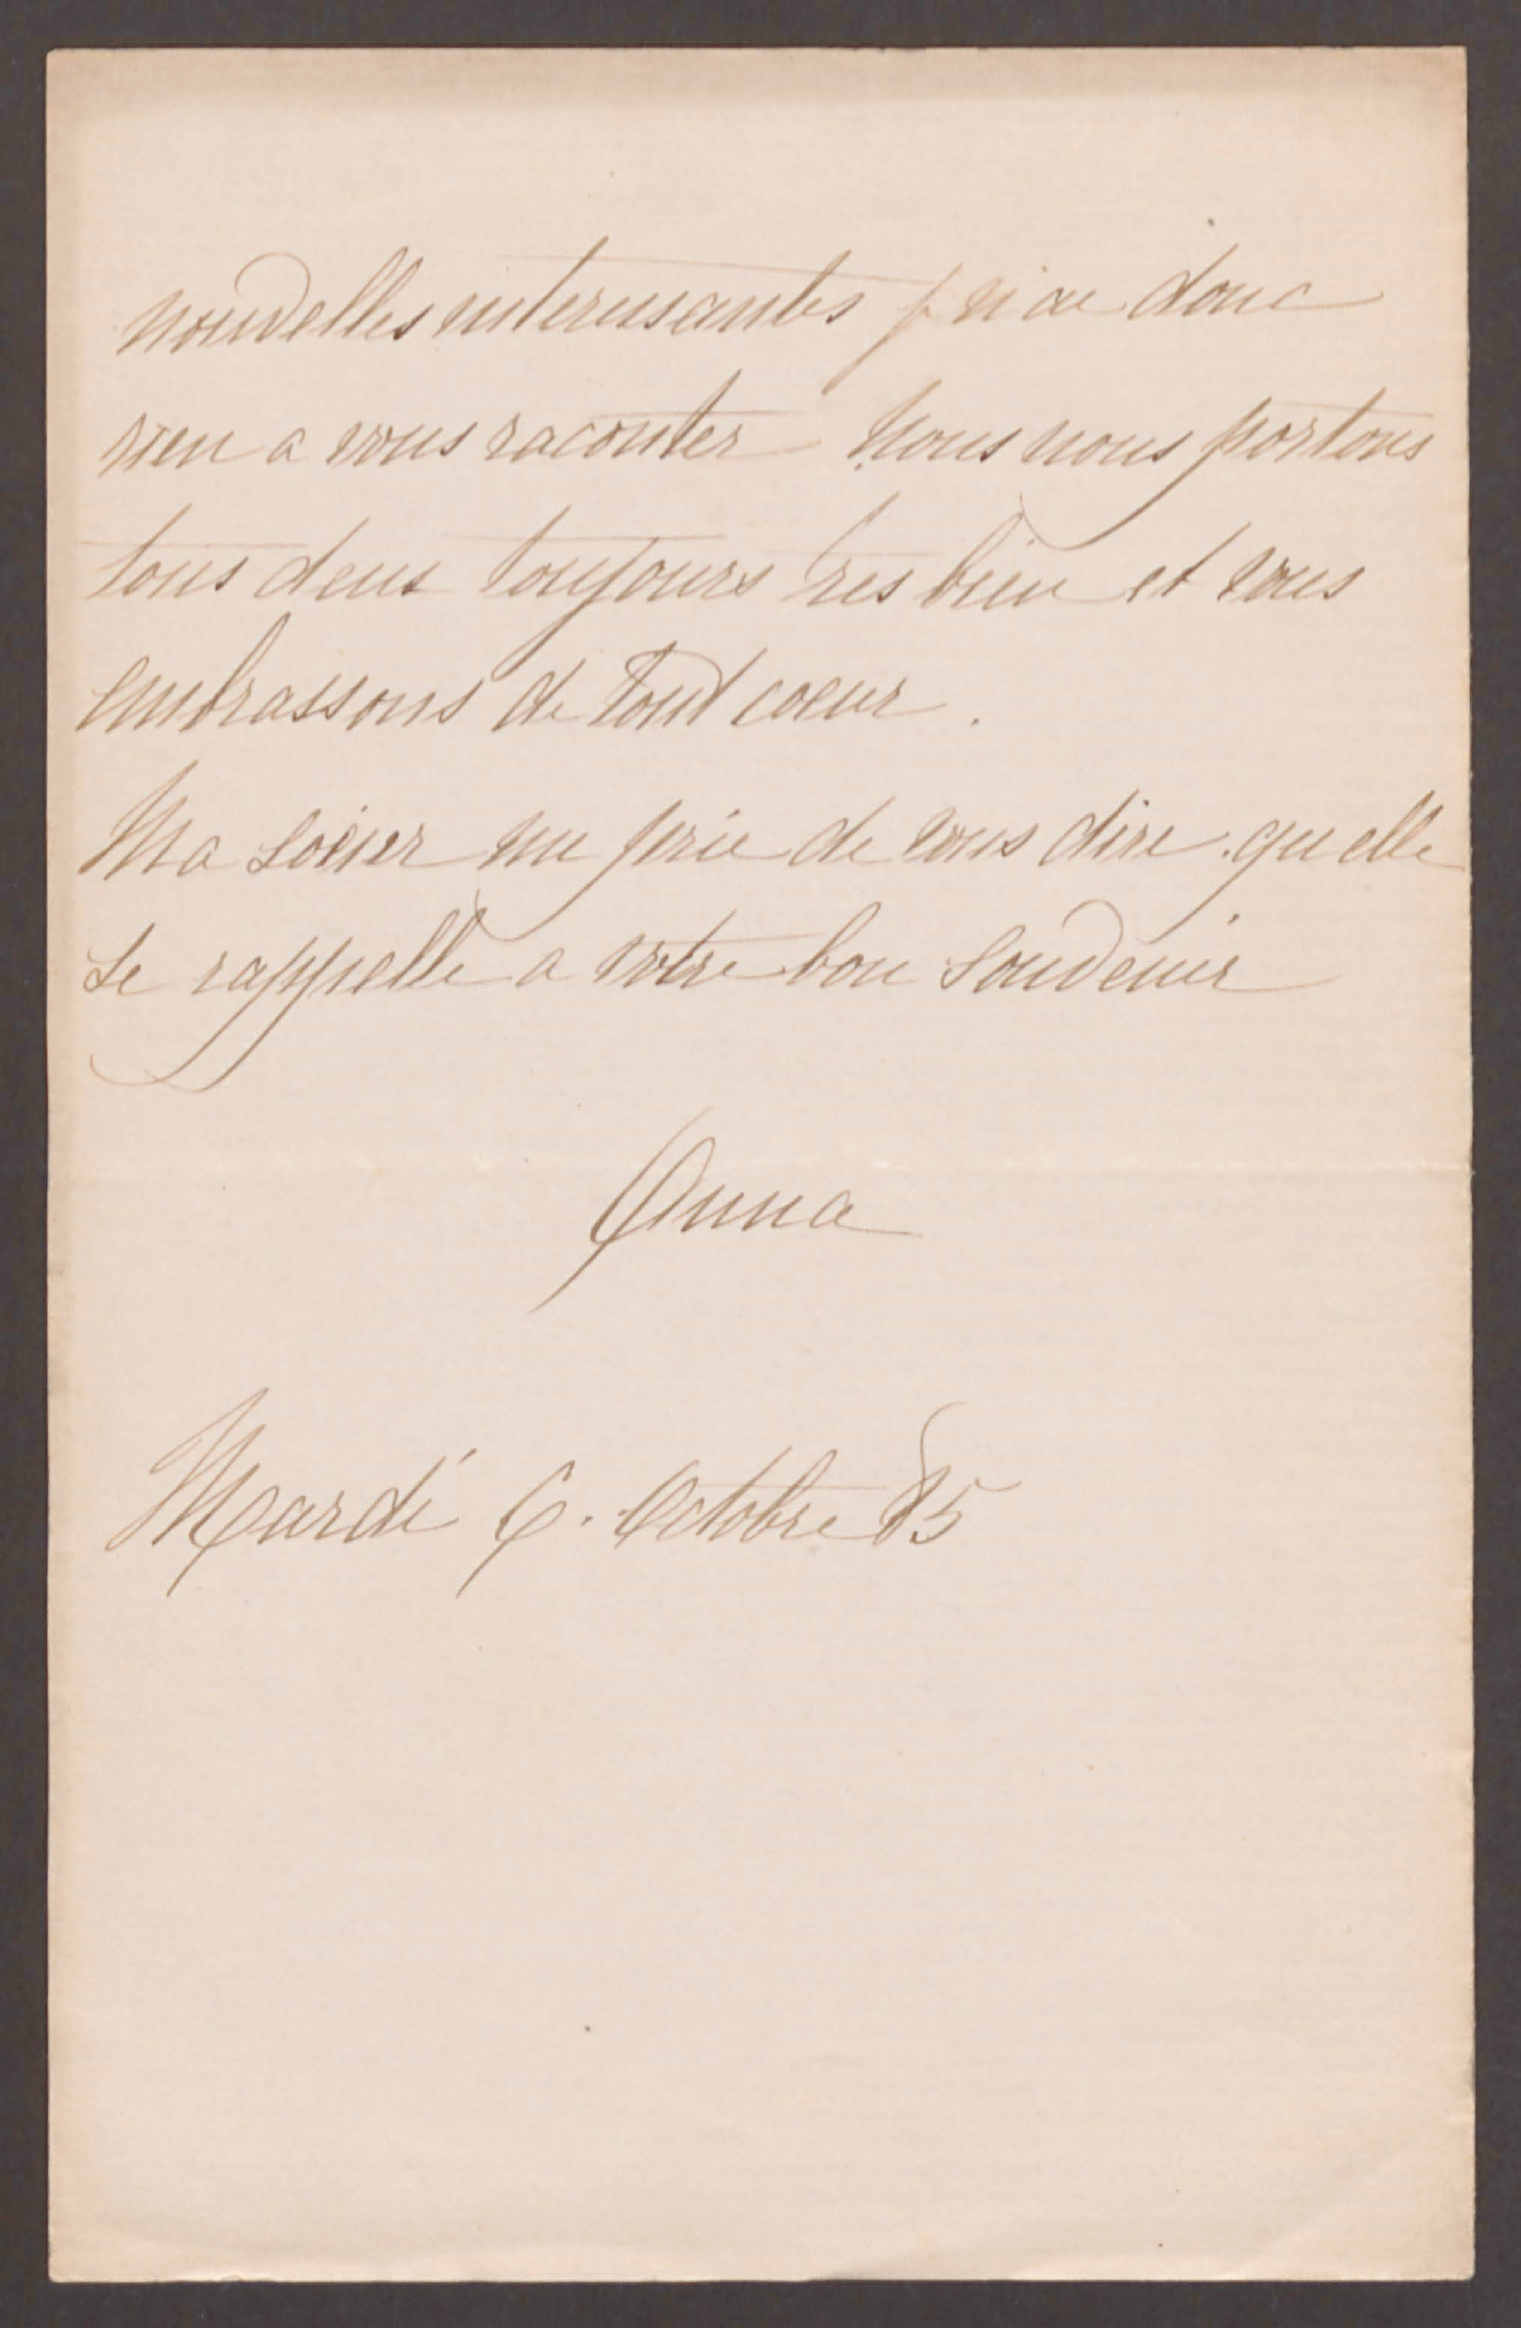 nouvelles interessantes j n'ai donc
rien a vous raconter Nous nous portons
tous deux toujours tres bien et vous
embrassons de tout coeur.
Ma soeur me prie de vous dire qu elle
se rappelle a votre bon souvenir
Anna
Mardi 6. Octobre 85